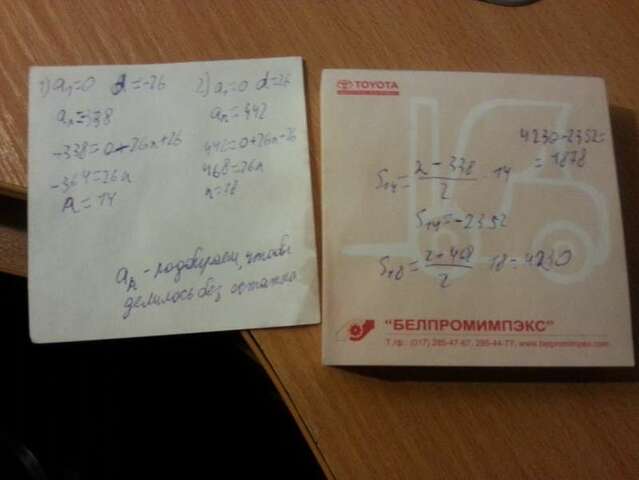 1) a₁=0 d=-26
aₙ=-338
-338=0-26n+26
-364=26n
n=14
2) a₁=0 d=26
aₙ=442
442=0+26n-26
468=26n
n=18
aₙ - подбираем, чтобы
делилось без остатка
TOYOTA
S₁₄= 2-338/2 · 14
S₁₄=-2352
S₁₈= 2+468/2 · 18=4230
4230-2352=
=1878
"БЕЛПРОМИМПЭКС"
Т./ф.: (017) 285-47-67, 285-44-77, www.belpromimpex.com